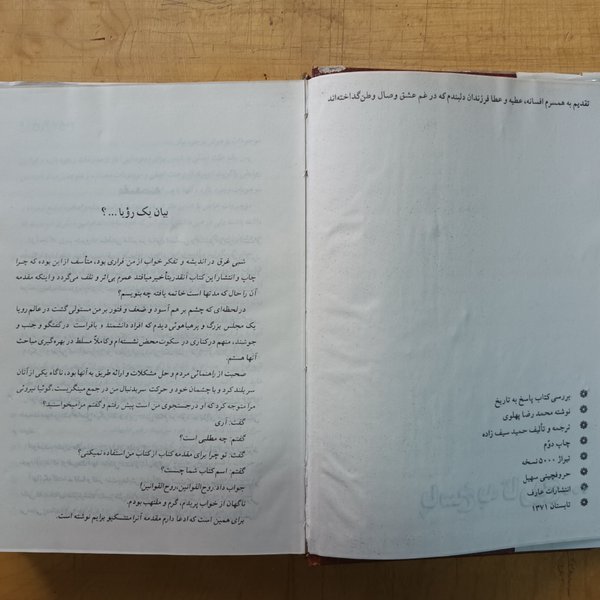 تقدیم به همسرم افسانه، عطیه و عطا فرزندان دلبندم که در غم عشق وصال وطن گداخته‌اند
بررسی کتاب پاسخ به تاریخ
نوشته محمد رضا پهلوی
ترجمه و تألیف حمید سیف زاده
چاپ دوّم
تیراژ ۵۰۰۰ نسخه
حروفچینی سهیل
انتشارات عارف
تابستان ۱۳۷۱
بیان یک رؤیا ...؟
شبی غرق در اندیشه و تفکر خواب از من فراری بود، متأسف از این بوده که چرا
چاپ و انتشار این کتاب آنقدر بتأخیر میافتد عمرم بی‌اثر و تلف می‌گردد و اینکه مقدمه
آن را حال که مدتها است خاتمه یافته چه بنویسم؟
در لحظه‌ای که چشم بر هم آسود و ضعف و فتور بر من مستولی گشت در عالم رویا
یک مجلس بزرگ و پرهیاهوئی دیدم که افراد دانشمند و بافراست در گفتگو و جنب و
جوشند، منهم در کناری در سکوت محض نشسته‌ام و کاملاً مسلط در بهره‌گیری مباحث
آنها هستم.
صحبت از راهنمائی مردم و حل مشکلات و ارائه طریق به آنها بود، ناگاه یکی از آنان
سر بلند کرد و با چشمان خود و حرکت سر بدنبال من در جمع میگریست، گوئیا نیروئی
مرا متوجه کرد که او در جستجوی من است پیش رفتم و گفتم مرا میخواستید؟
گفت: آری
گفتم: چه مطلبی است؟
گفت: تو چرا برای مقدمه کتاب از کتاب من استفاده نمیکنی؟
گفتم: اسم کتاب شما چیست؟
جواب داد: روح‌القوانین، روح‌القوانین!
ناگهان از خواب پریدم، گرم و ملتهب بودم.
برای همین است که ادعا دارم مقدمه آنرا منتسکیو برایم نوشته است.